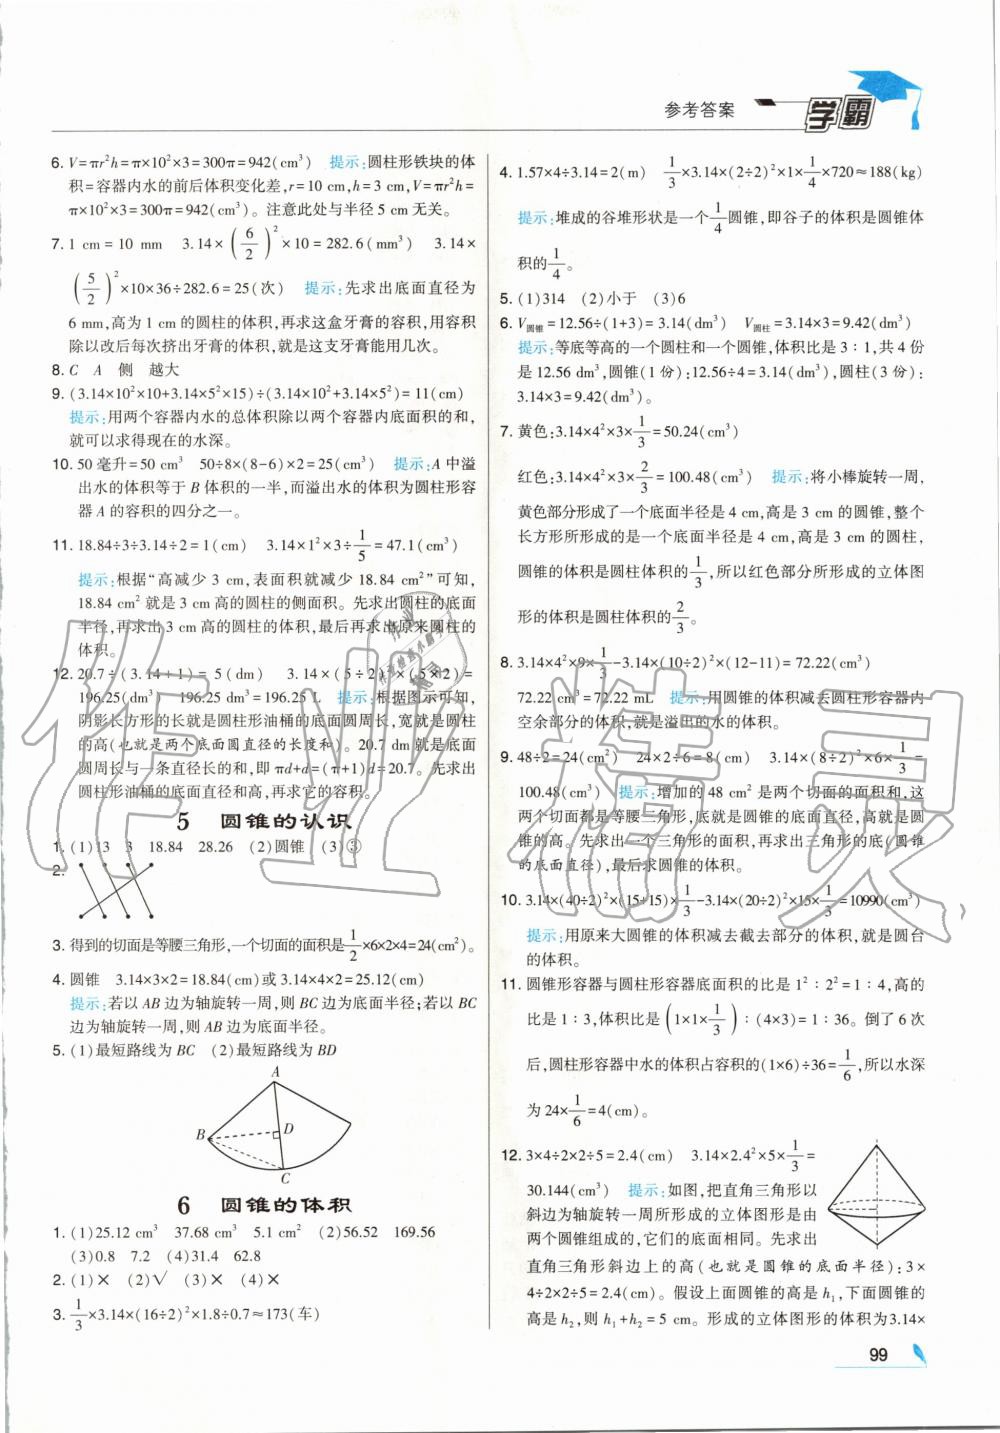 参考答案
学霸
6. V=πr²h=π×10²×3=300π=942(cm³) 提示:圆柱形铁块的体
积=容器内水的前后体积变化差,r=10 cm,h=3 cm,V=πr²h=
π×10²×3=300π=942(cm³)。注意此处与半径5 cm无关。
7. 1 cm=10 mm 3.14×(6/2)²×10=282.6(mm³) 3.14×
(5/2)²×10×36÷282.6=25(次) 提示:先求出底面直径为
6 mm,高为1 cm的圆柱的体积,再求这盒牙膏的容积,用容积
除以改后每次挤出牙膏的体积,就是这支牙膏能用几次。
8. C A 侧 越大
9. (3.14×10²×10+3.14×5²×15)÷(3.14×10²+3.14×5²)=11(cm)
提示:用两个容器内水的总体积除以两个容器内底面积的和,
就可以求得现在的水深。
10. 50毫升=50 cm³ 50÷8×(8-6)×2=25(cm³) 提示:A中溢
出水的体积等于B体积的一半,而溢出水的体积为圆柱形容
器A的容积的四分之一。
11. 18.84÷3÷3.14÷2=1(cm) 3.14×1²×3÷1/5=47.1(cm³)
提示:根据“高减少3 cm,表面积就减少18.84 cm²”可知,
18.84 cm²就是3 cm高的圆柱的侧面积。先求出圆柱的底面
半径,再求出3 cm高的圆柱的体积,最后再求出原来圆柱的
体积。
12. 20.7÷(3.14+1)=5(dm) 3.14×(5÷2)²×(5×2)=
196.25(dm³) 196.25 dm³=196.25 L 提示:根据图示可知,
阴影长方形的长就是圆柱形油桶的底面圆周长,宽就是圆柱
的高(也就是两个底面圆直径的长度和)。20.7 dm就是底面
圆周长与一条直径长的和,即πd+d=(π+1)d=20.7。先求出
圆柱形油桶的底面直径和高,再求它的容积。
5 圆锥的认识
1. (1)3 3 18.84 28.26 (2)圆锥 (3)③
2.
3. 得到的切面是等腰三角形,一个切面的面积是1/2×6×2×4=24(cm²)。
4. 圆锥 3.14×3×2=18.84(cm)或3.14×4×2=25.12(cm)
提示:若以AB边为轴旋转一周,则BC边为底面半径;若以BC
边为轴旋转一周,则AB边为底面半径。
5. (1)最短路线为BC (2)最短路线为BD
A
B
D
C
6 圆锥的体积
1. (1)25.12 cm³ 37.68 cm³ 5.1 cm² (2)56.52 169.56
(3)0.8 7.2 (4)31.4 62.8
2. (1)× (2)√ (3)× (4)×
3. 1/3×3.14×(16÷2)²×1.8÷0.7≈173(车)
4. 1.57×4÷3.14=2(m) 1/3×3.14×(2÷2)²×1×1/4×720≈188(kg)
提示:堆成的谷堆形状是一个1/4圆锥,即谷子的体积是圆锥体
积的1/4。
5. (1)314 (2)小于 (3)6
6. V圆锥=12.56÷(1+3)=3.14(dm³) V圆柱=3.14×3=9.42(dm³)
提示:等底等高的一个圆柱和一个圆锥,体积比是3∶1,共4份
是12.56 dm³,圆锥(1份):12.56÷4=3.14(dm³),圆柱(3份):
3.14×3=9.42(dm³)。
7. 黄色:3.14×4²×3×1/3=50.24(cm³)
红色:3.14×4²×3×2/3=100.48(cm³) 提示:将小棒旋转一周,
黄色部分形成了一个底面半径是4 cm,高是3 cm的圆锥,整个
长方形所形成的是一个底面半径是4 cm,高是3 cm的圆柱,
圆锥的体积是圆柱体积的1/3,所以红色部分所形成的立体图
形的体积是圆柱体积的2/3。
8. 3.14×4²×9×1/3-3.14×(10÷2)²×(12-11)=72.22(cm³)
72.22 cm³=72.22 mL 提示:用圆锥的体积减去圆柱形容器内
空余部分的体积,就是溢出的水的体积。
9. 48÷2=24(cm²) 24×2÷6=8(cm) 3.14×(8÷2)²×6×1/3=
100.48(cm³) 提示:增加的48 cm²是两个切面的面积和,这
两个切面都是等腰三角形,底就是圆锥的底面直径,高就是圆
锥的高。先求出一个三角形的面积,再求出三角形的底(圆锥
的底面直径),最后求圆锥的体积。
10. 3.14×(40÷2)²×(15+15)×1/3-3.14×(20÷2)²×15×1/3=10990(cm³)
提示:用原来大圆锥的体积减去截去部分的体积,就是圆台
的体积。
11. 圆锥形容器与圆柱形容器底面积的比是1²∶2²=1∶4,高的
比是1∶3,体积比是(1×1×1/3)∶(4×3)=1∶36。倒了6次
后,圆柱形容器中水的体积占容积的(1×6)÷36=1/6,所以水深
为24×1/6=4(cm)。
12. 3×4÷2×2÷5=2.4(cm) 3.14×2.4²×5×1/3=
30.144(cm³) 提示:如图,把直角三角形以
斜边为轴旋转一周所形成的立体图形是由
两个圆锥组成的,它们的底面相同。先求出
直角三角形斜边上的高(也就是圆锥的底面半径):3×
4÷2×2÷5=2.4(cm)。假设上面圆锥的高是h₁,下面圆锥的
高是h₂,则h₁+h₂=5 cm。形成的立体图形的体积为3.14×
99
作业精灵